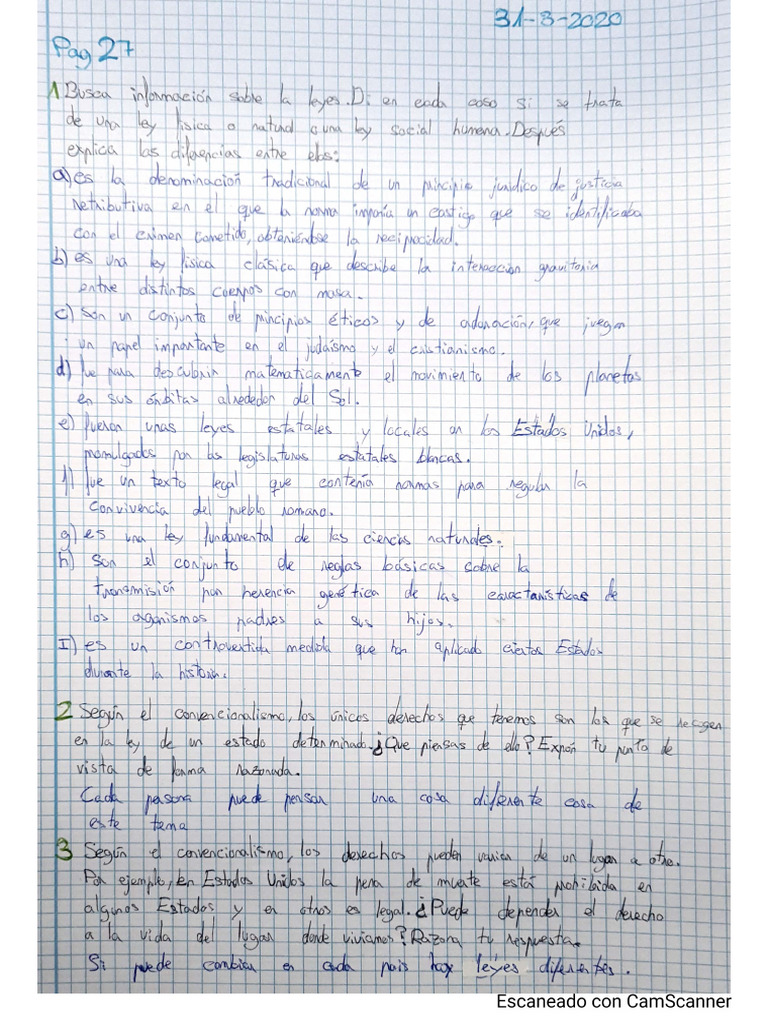 31-3-2020
Pag 27
1 Busca información sobre la leyes. Di en cada caso si se trata
de una ley física o natural o una ley social humana. Después
explica las diferencias entre ellas:
a) es la denominación tradicional de un principio jurídico de justicia
retributiva en el que la norma imponía un castigo que se identificaba
con el crimen cometido, obteniéndose la reciprocidad.
b) es una ley física clásica que describe la interacción gravitoria
entre distintos cuerpos con masa.
c) son un conjunto de principios éticos y de adoración, que juegan
un papel importante en el judaísmo y el cristianismo.
d) fue para descubrir matematicamente el movimiento de los planetas
en sus órbitas alrededor del Sol.
e) fueron unas leyes estatales y locales en los Estados Unidos,
promulgados por las legislaturas estatales blancas.
f) fue un texto legal que contenía normas para regular la
convivencia del pueblo romano.
g) es una ley fundamental de las ciencias naturales.
h) son el conjunto de reglas básicas sobre la
transmisión por herencia genética de las características de
los organismos padres a sus hijos.
I) es un controvertida medida que han aplicado ciertos Estados
durante la historia.
2 Según el convencionalismo, los únicos derechos que tenemos son los que se recogen
en la ley de un estado determinado. ¿Que piensas de ello? Expón tu punto de
vista de forma razonada.
Cada persona puede pensar una cosa diferente cosa de
este tema
3 Según el convencionalismo, los derechos pueden variar de un lugar a otro.
Por ejemplo, en Estados Unidos la pena de muerte está prohibida en
algunos Estados y en otros es legal. ¿Puede depender el derecho
a la vida del lugar donde vivamos? Razona tu respuesta.
Si puede cambiar en cada pais hay leyes diferentes.
Escaneado con CamScanner